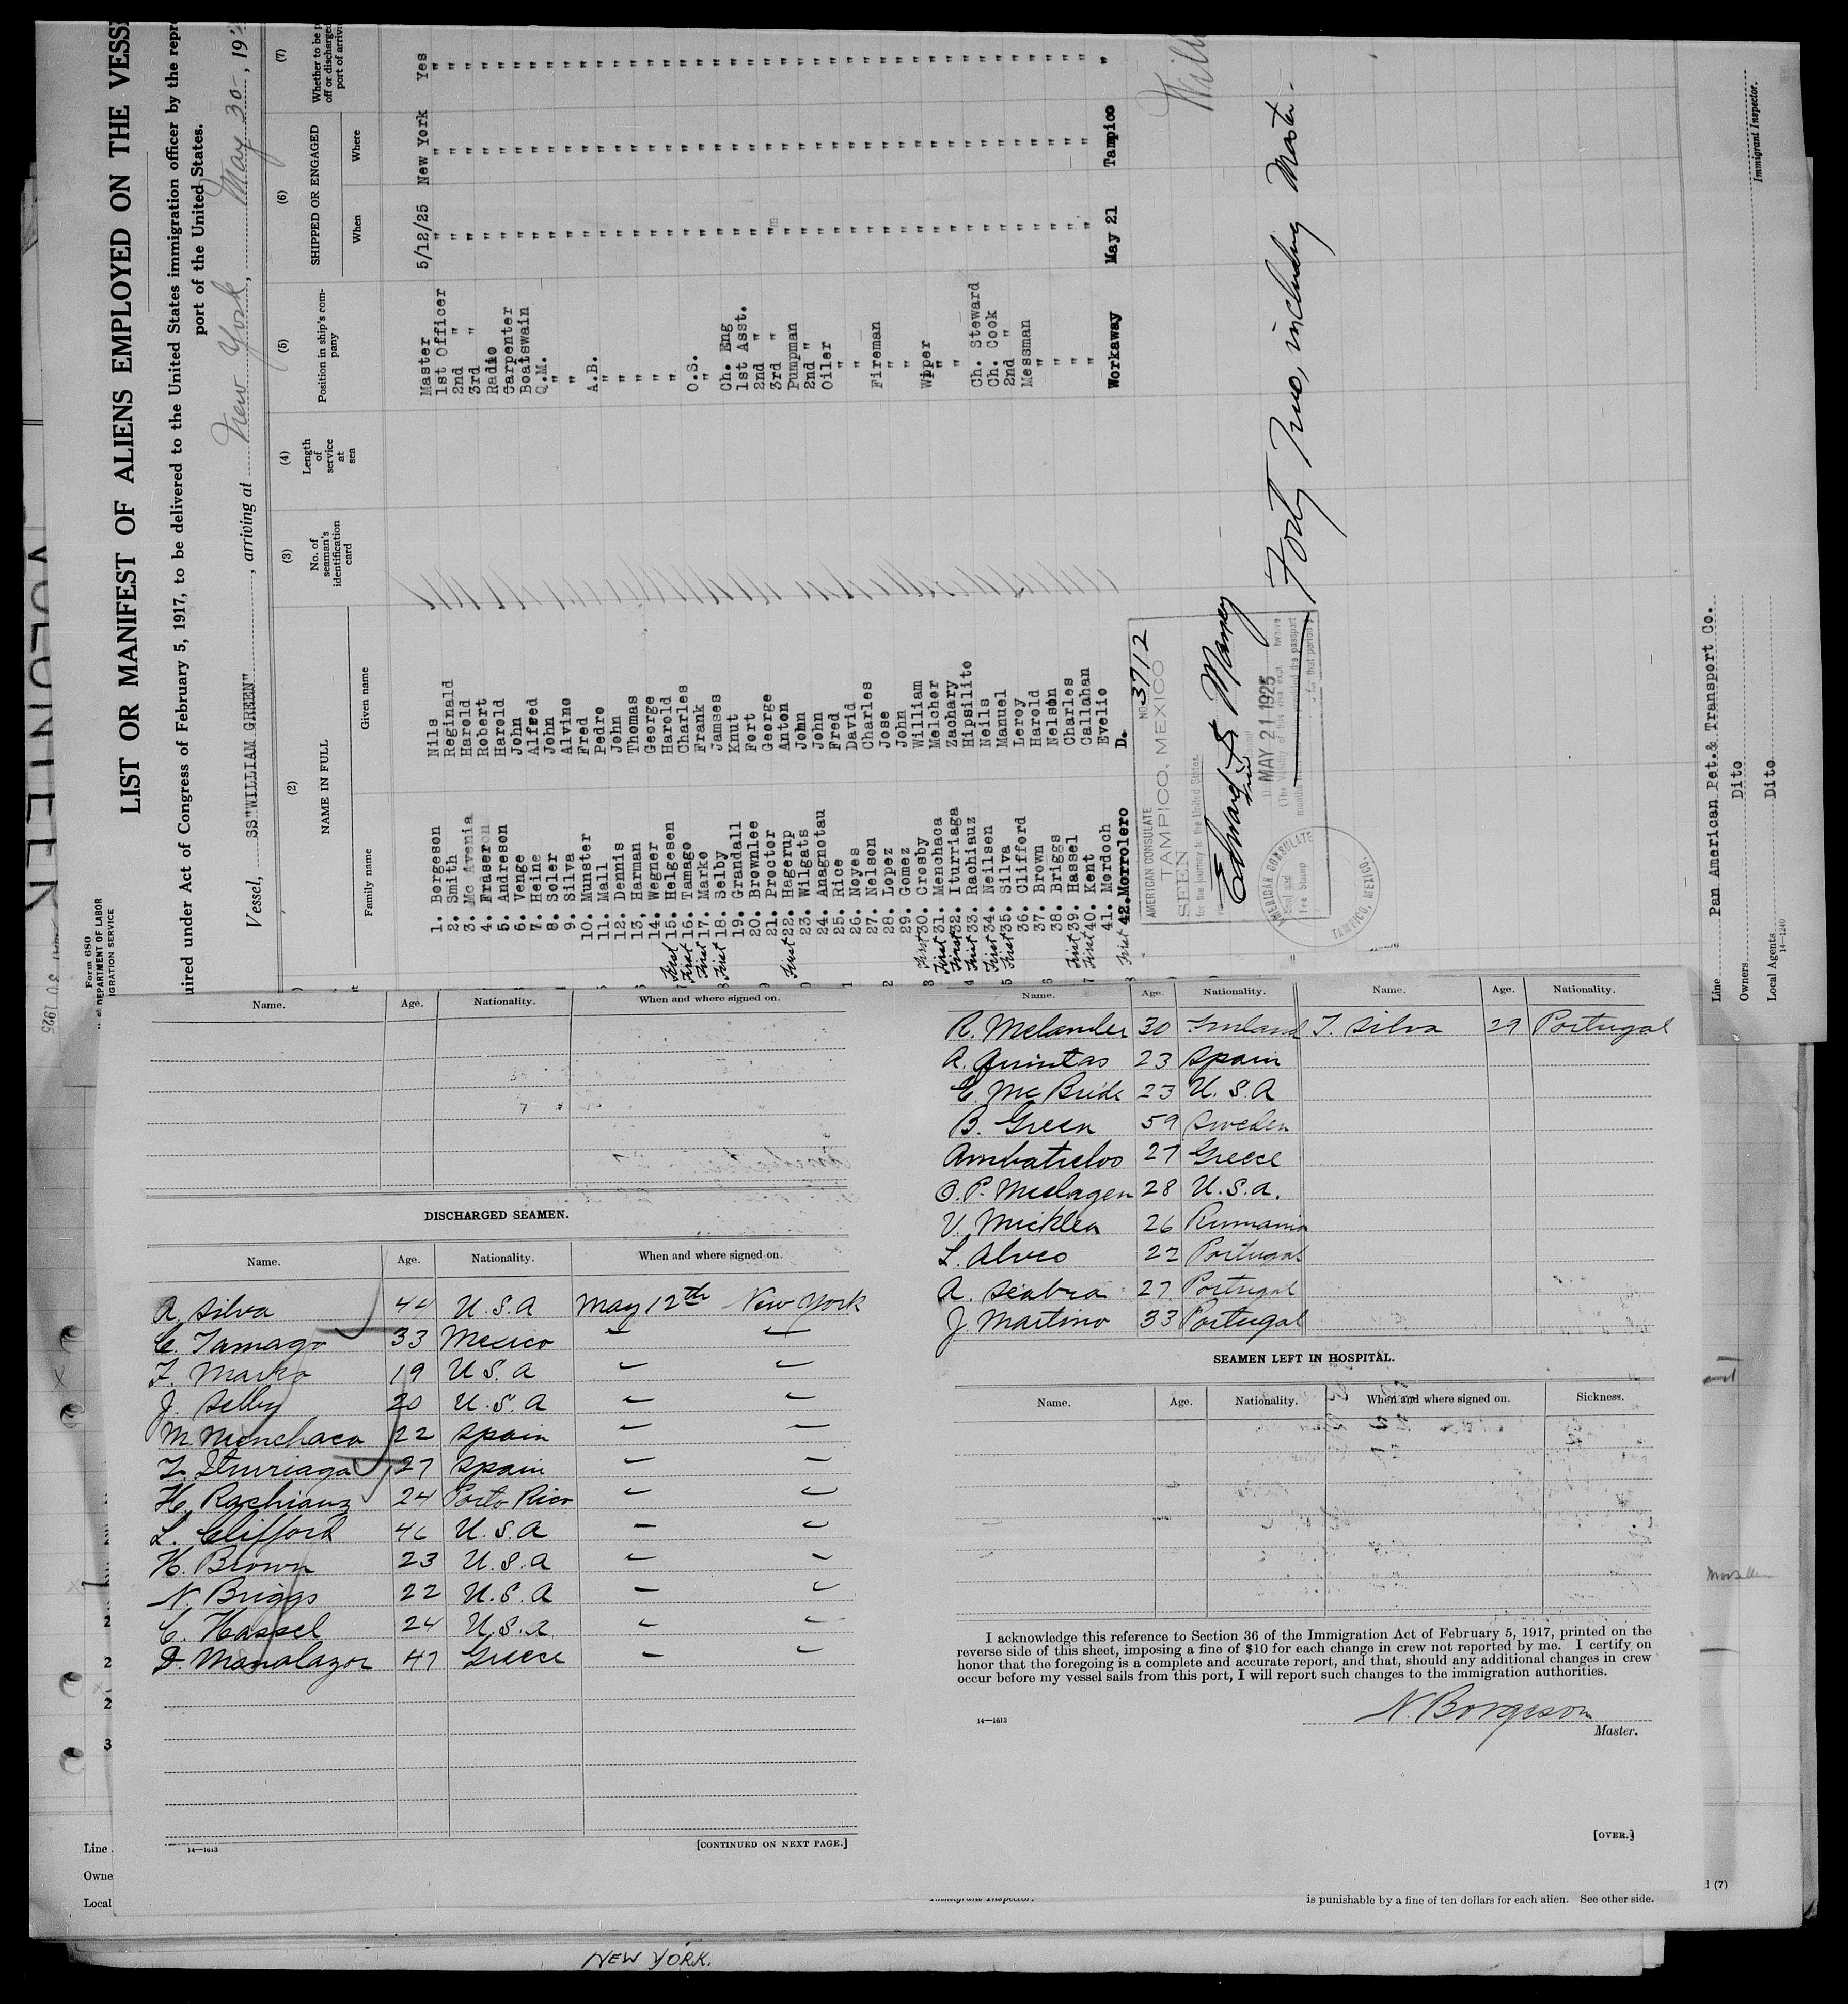 Form 680
DEPARTMENT OF LABOR
IGRATION SERVICE
LIST OR MANIFEST OF ALIENS EMPLOYED ON THE VESS
uired under Act of Congress of February 5, 1917, to be delivered to the United States immigration officer by the repr
port of the United States.
Vessel, SS"WILLIAM GREEN", arriving at New York, May 30, 19
(2) (3) (4) (5) (6) (7)
NAME IN FULL No. of seaman's identification card Length of service at sea Position in ship's company SHIPPED OR ENGAGED Whether to be off or discharged port of arriva
Family name Given name When Where
1. Borgeson Nils Master 5/12/25 New York Yes
2. Smith Reginald 1st Officer " " "
3. Mc Avenia Harold 2nd " " " "
4. Fraser Robert 3rd " " " "
5. Andreson Harold Radio " " "
6. Venge John Carpenter " " "
7. Heine Alfred Boatswain " " "
8. Soler John Q.M. " " "
9. Silva Alvino " " " "
10. Munster Fred " " " "
11. Mall Pedro A.B. " " "
12. Dennis John " " " "
13. Harman Thomas " " " "
14. Wegner George " " " "
First 15. Helgesen Harold " " " "
First 16. Tamago Charles " " " "
First 17. Marko Frank O.S. " " "
First 18. Selby Jamses " " " "
19. Grandall Knut Ch. Eng " " "
20. Brownlee Fort 1st Asst. " " "
21. Proctor George 2nd " " " "
First 22. Hagerup Anton 3rd " " " "
23. Wilgats John Pumpman " " "
24. Anagnotau John 2nd " " " "
25. Rice Fred Oiler " " "
26. Noyes David " " " "
27. Nelson Charles " " " "
28. Lopez Jose Fireman " " "
29. Gomez John " " " "
First 30. Crosby William " " " "
First 31. Menchaca Melcher Wiper " " "
First 32. Iturriaga Zachary " " " "
First 33. Rachiauz Hipsilito " " " "
First 34. Neilsen Neils Ch. Steward " " "
First 35. Silva Manuel Ch. Cook " " "
36. Clifford Leroy 2nd " " " "
37. Brown Harold Messman " " "
38. Briggs Nelson " " " "
First 39. Hassel Charles " " " "
First 40. Kent Callahan " " " "
41. Mordoch Evelio " " " "
First 42. Morrolero D. Workaway May 21 Tampico "
AMERICAN CONSULATE NO. 3712
TAMPICO, MEXICO
SEEN
for the journey to the United States.
MAY 21 1925
AMERICAN CONSULATE
Seal and
Fee Stamp
TAMPICO, MEXICO.
Forty Two, including Master.
Line Pan American Pet.& Transport Co.
Owners Dito
Local Agents Dito
14—1240
Immigrant Inspector.
Name. Age. Nationality. When and where signed on.
DISCHARGED SEAMEN.
Name. Age. Nationality. When and where signed on.
A. Silva 44 U.S.A May 12th New York
C. Tamago 33 Mexico
F. Marko 19 U.S.A
J. Selby 20 U.S.A
M. Menchaca 22 Spain
Z. Iturriaga 27 Spain
H. Rachiauz 24 Porto Rico
L. Clifford 46 U.S.A
H. Brown 23 U.S.A
N. Briggs 22 U.S.A
C. Hassel 24 U.S.A
D. Manolazor 47 Greece
14—1613 [CONTINUED ON NEXT PAGE.]
Name. Age. Nationality. Name. Age. Nationality.
R. Melander 30 Finland J. Silva 29 Portugal
A. Quintas 23 Spain
E. Mc Bride 23 U.S.A
B. Green 59 Sweden
Ambatielos 27 Greece
28 U.S.A.
V. Micklea 26 Rumania
L. Alves 22 Portugal
A. Seabra 27 Portugal
J. Martino 33 Portugal
SEAMEN LEFT IN HOSPITAL.
Name. Age. Nationality. When and where signed on. Sickness.
I acknowledge this reference to Section 36 of the Immigration Act of February 5, 1917, printed on the
reverse side of this sheet, imposing a fine of $10 for each change in crew not reported by me. I certify on
honor that the foregoing is a complete and accurate report, and that, should any additional changes in crew
occur before my vessel sails from this port, I will report such changes to the immigration authorities.
N. Borgeson
14—1613 Master.
[OVER.]
Line
Owne
Local
Immigrant Inspector. is punishable by a fine of ten dollars for each alien. See other side.
NEW YORK.